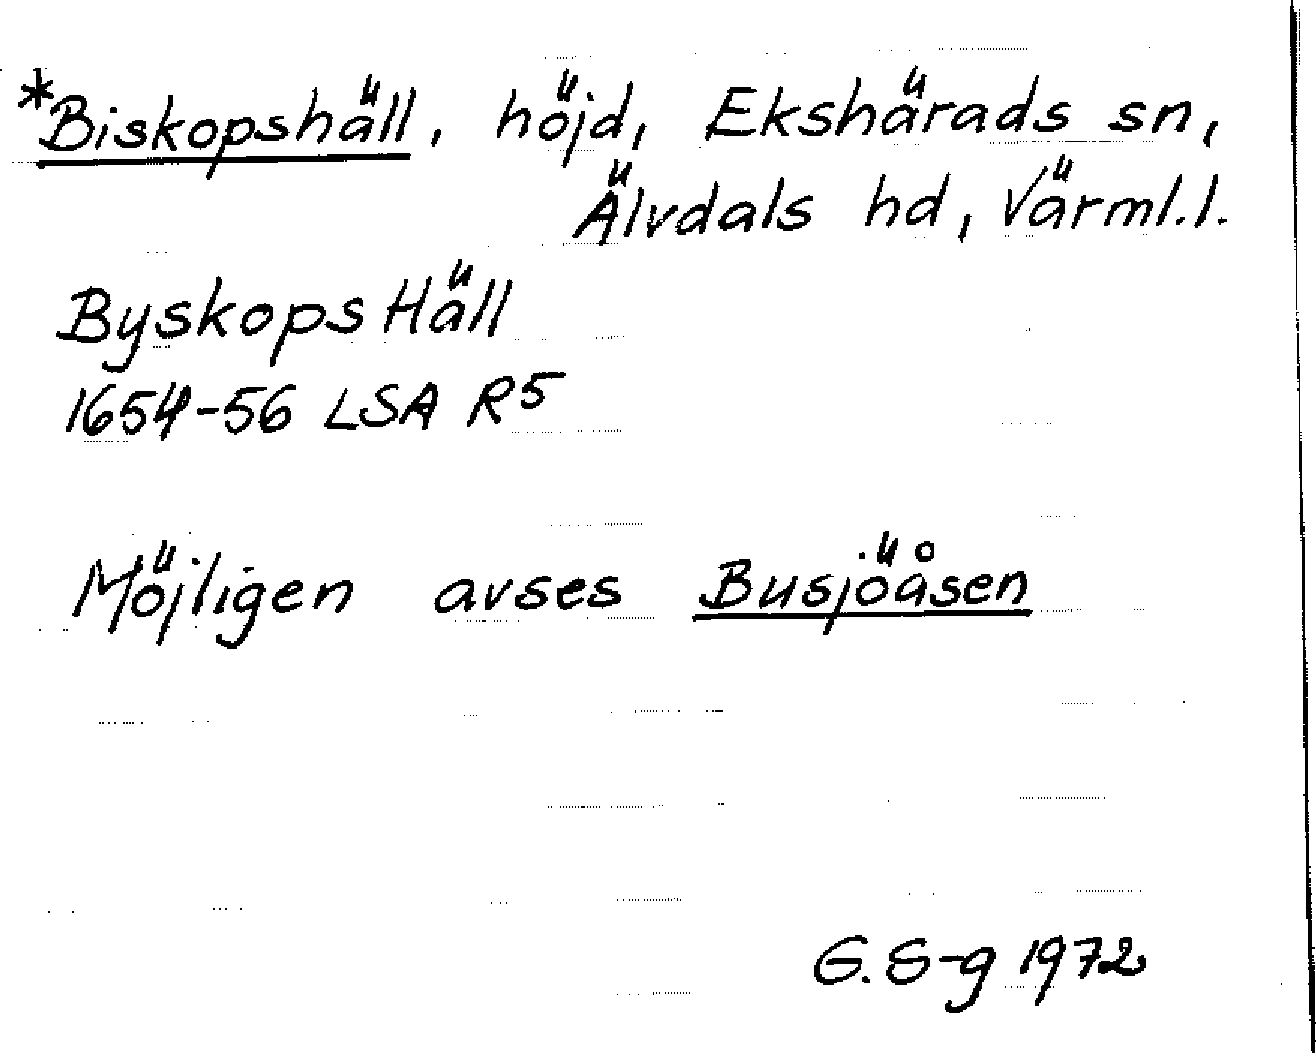 *Biskopshäll, höjd, Ekshärads sn,
Älvdals hd, Värml.l.
Byskops Häll
1654-56 LSA R5
Möjligen avses Busjöåsen
G.S-g 1972